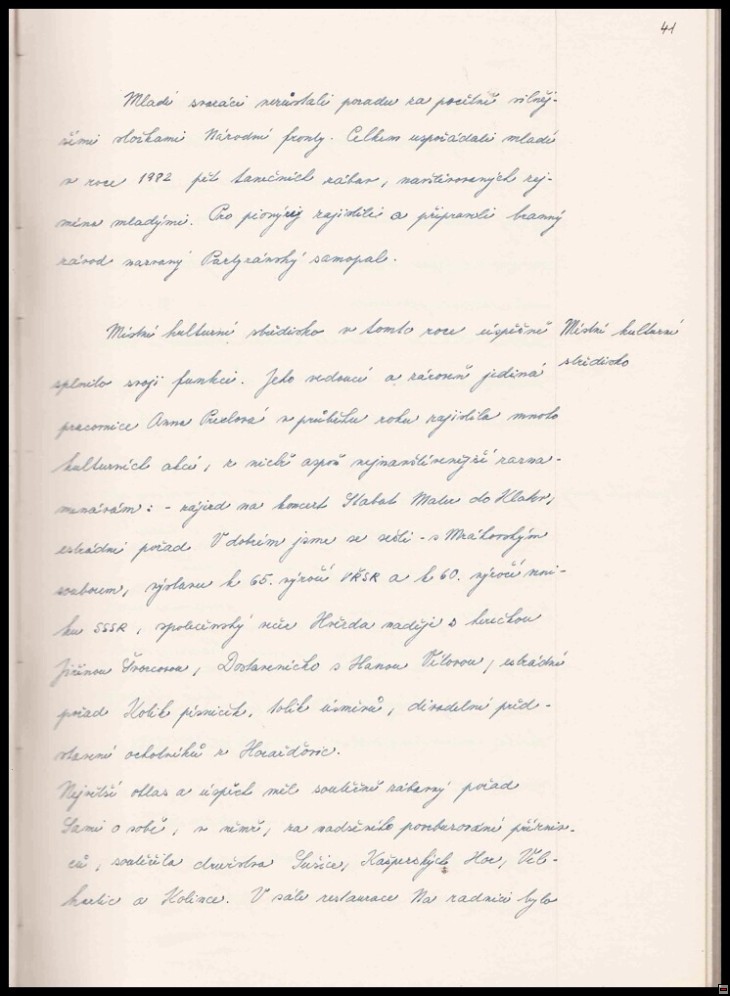 41
Mladí svazáci nezůstali pozadu za početně silněj-
šími složkami Národní fronty. Celkem uspořádali mladí
v roce 1982 pět tanečních zábav, navštěvovaných zej-
ména mladými. Pro pionýry zajistili a připravili branný
závod nazvaný Partyzánský samopal.
Místní kulturní středisko v tomto roce úspěšně
splnilo svoji funkci. Jeho vedoucí a zároveň jediná
pracovnice Anna v průběhu roku zajistila mnoho
kulturních akcí, z nichž aspoň nejnavštívenější zazna-
menávám: - zájezd na koncert Stabat Mater do Klatov,
estrádní pořad V dobrém jsme se sešli - s Mrákovským
souborem, výstavu k 65. výročí VŘSR a k 60. výročí vzni-
ku SSSR, společenský večer Hvězda naděje s herečkou
Jiřinou Švorcovou, Dostaveníčko s Hanou Vítovou, estrádní
pořad Kolik písniček, tolik úsměvů, divadelní před-
stavení ochotníků z Horažďovic.
Největší ohlas a úspěch měl soutěžně zábavný pořad
Sami o sobě, v němž, za nadšeného povzbuzování příazniv-
ců, soutěžila družstva Sušice, Kašperských Hor, Vel-
hartic a Kolince. V sále restaurace Na radnici bylo
Místní kulturní
středisko